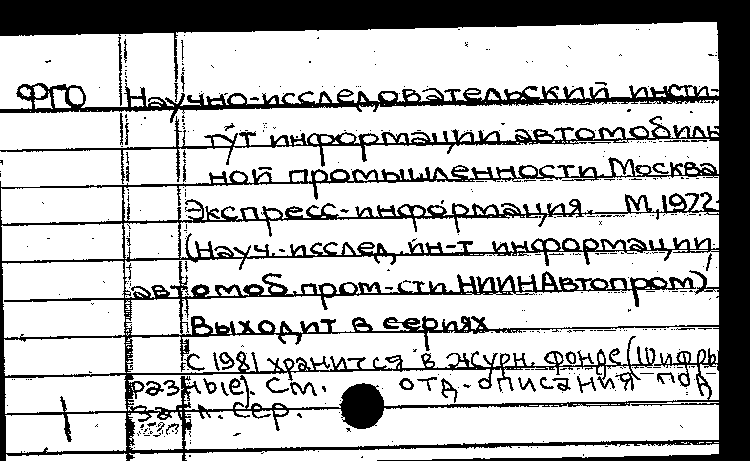 ФГО Научно-исследовательский инсти-
тут информации автомобиль
ной промышленности. Москва
Экспресс-информация. М, 1972-
(Науч.-исслед. ин-т информации
автомоб. пром-сти НИИНАвтопром)
Выходит в сериях
С 1981 хранится в журн. фонде (Шифры
разные). См. отд. описания под
загл. сер.